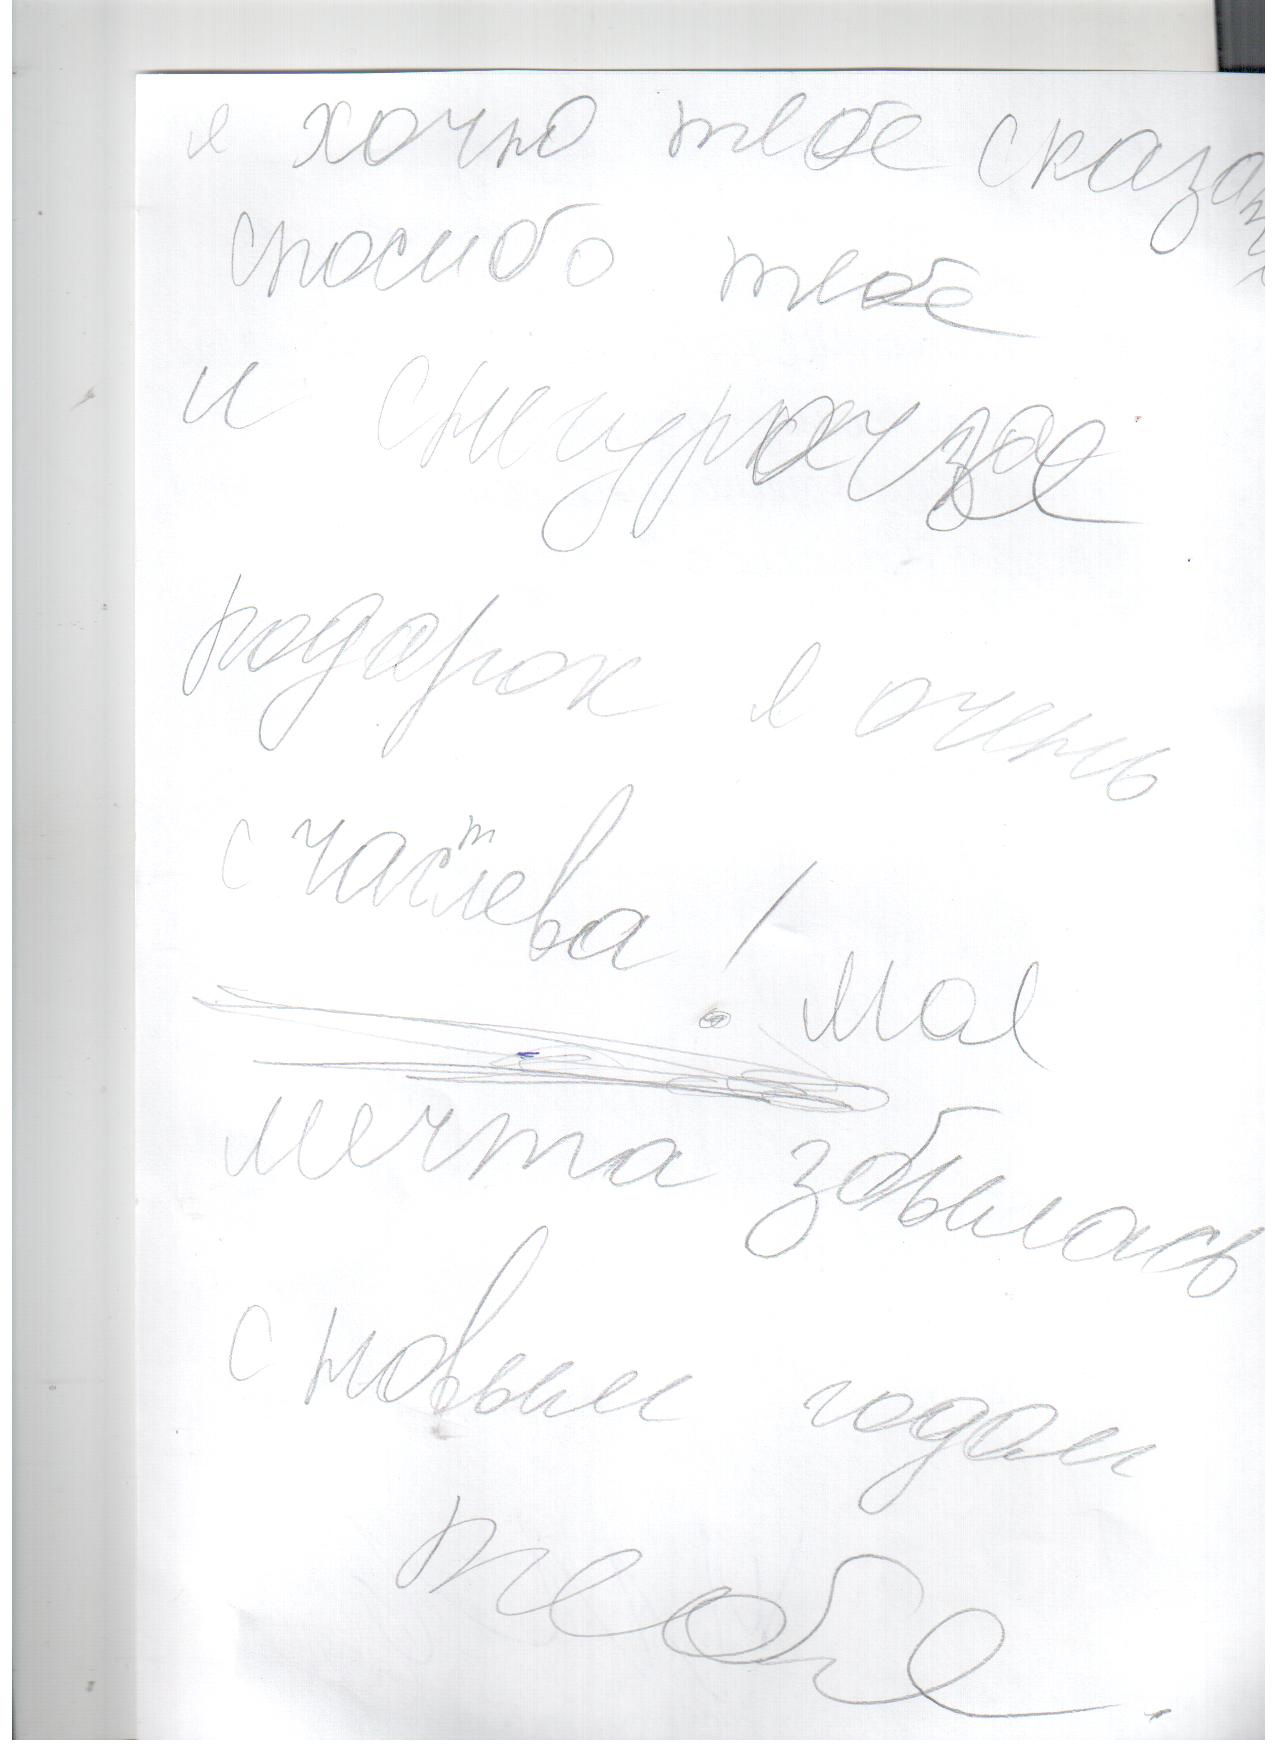 я хочю тебе сказать
спосибо тебе
и снигурачзае
подарок я очень
счастлева! моя
мечта збылась
с новым годам
тебе.